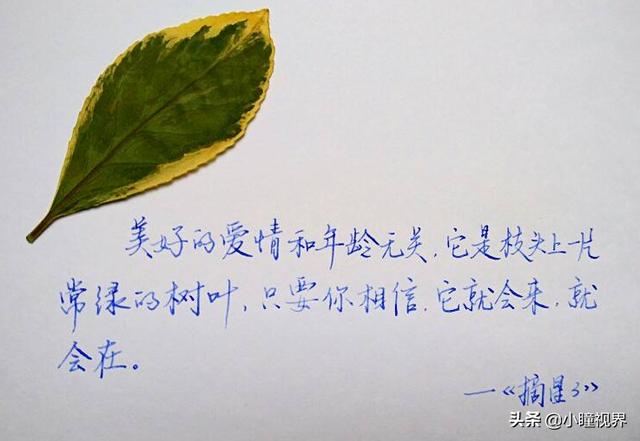 美好的爱情和年龄无关，它是枝头上一片
常绿的树叶，只要你相信，它就会来，就
会在。
—《摘星3》
头条 @小瞳视界